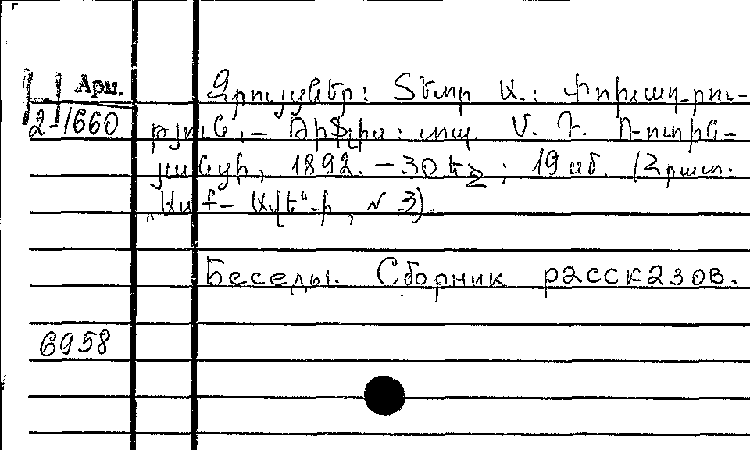 Арм.
2-1660
Զրույցներ: Տետր Ա.: Փոխադրու-
թյուն.— Թիֆլիս: տպ. Մ. Դ. Ռոտին-
յանցի, 1892. —30 եջ; 19 սմ. (Հրատ.
№ 3).
Беседы. Сборник рассказов.
6958